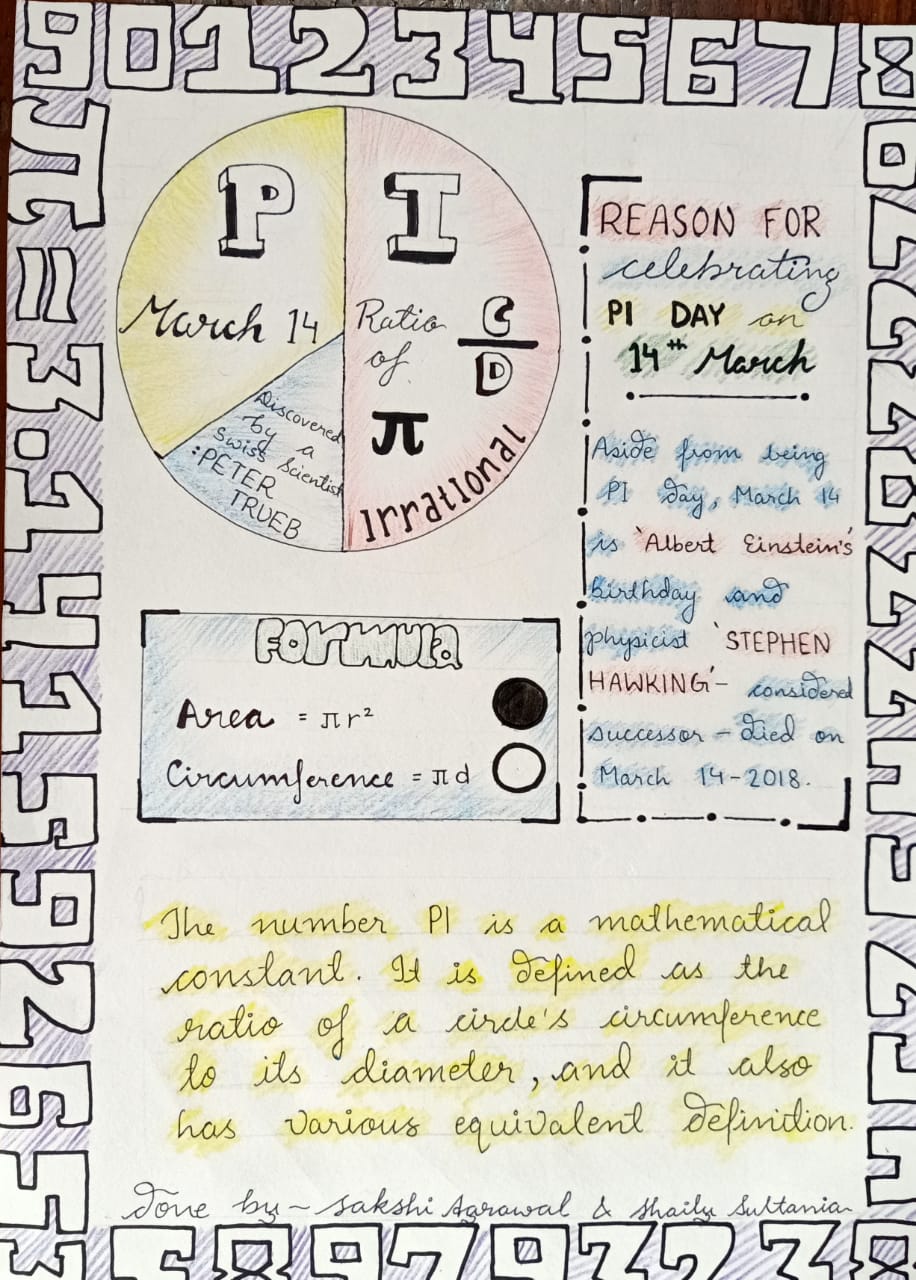 9012345678
π = 3.141592653
P
I
March 14
Ratio
of
C
D
π
Irrational
Discovered
by a
Swiss Scientist
:PETER
TRUEB
REASON FOR
celebrating
PI DAY on
14th March
Aside from being
PI day, March 14
is 'Albert Einstein's'
birthday and
physicist 'STEPHEN
HAWKING' - considered
successor - died on
March 14-2018.
Formula
Area = πr²
Circumference = πd
The number PI is a mathematical
constant. It is defined as the
ratio of a circle's circumference
to its diameter, and it also
has various equivalent definition.
Done by - Sakshi Agrawal & Shaily Sultania
589793238